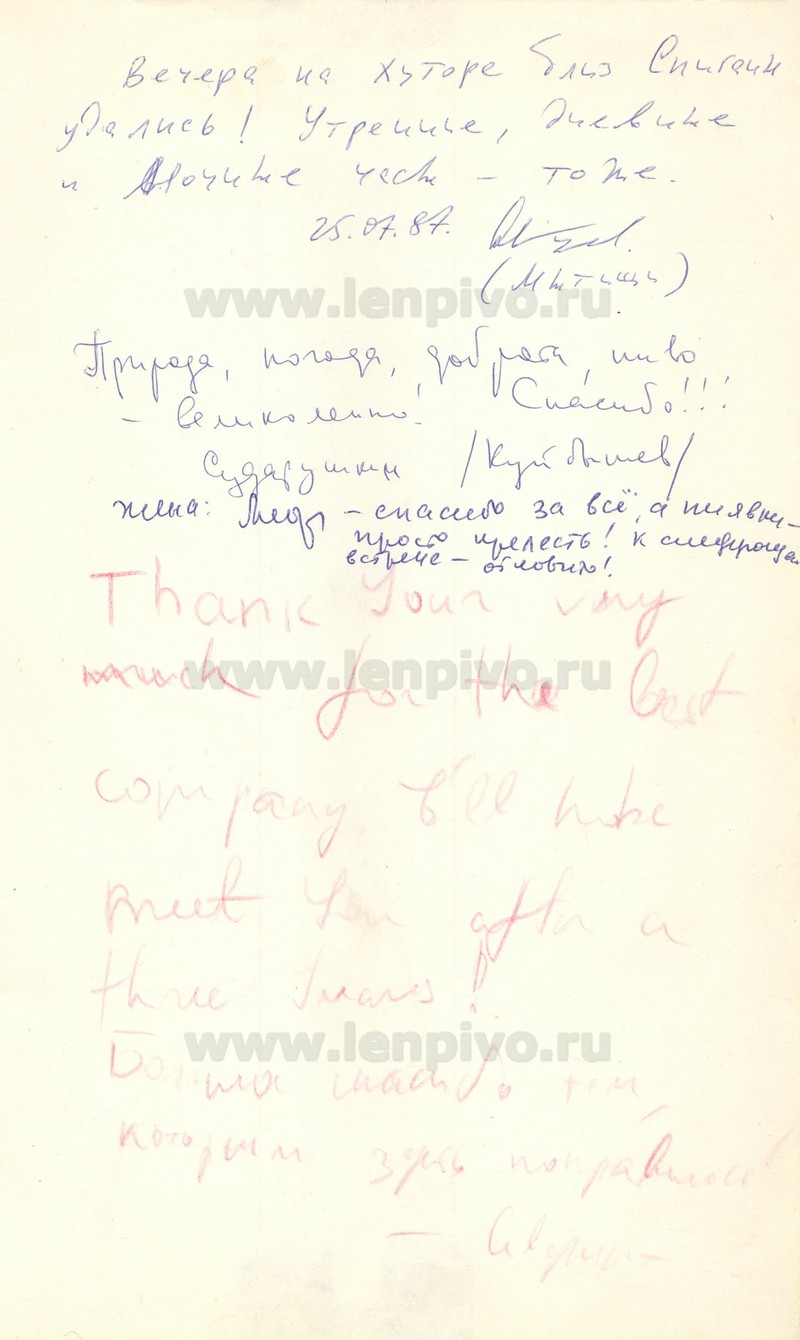 Вечера на хуторе близ Спигани
удались! Утренние, дневные
и ночные часы – тоже.
25.07.87.
(Мытищи)
www.lenpivo.ru
Природа, погода, доброта, пиво
– великолепно! Спасибо!!!
Сударушкин /Куйбышев/
жена: – спасибо за всё, а пиявки –
просто прелесть! К следующей
встрече – отловить!
Thank Your very
much for the best
www.lenpivo.ru
company I'll
meet You after a
three Years!
www.lenpivo.ru
спасибо тем,
которым здесь понравилось